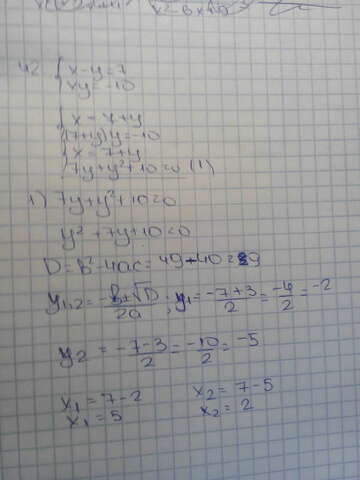 42. { x-y=7
xy=-10
{ x=7+y
(7+y)y=-10
{ x=7+y
7y+y²+10=0 (1)
1) 7y+y²+10=0
y²+7y+10=0
D=b²-4ac=49-40=9
y₁,₂=(-b±√D)/2a; y₁=(-7+3)/2=-4/2=-2
y₂=(-7-3)/2=-10/2=-5
x₁=7-2 x₂=7-5
x₁=5 x₂=2